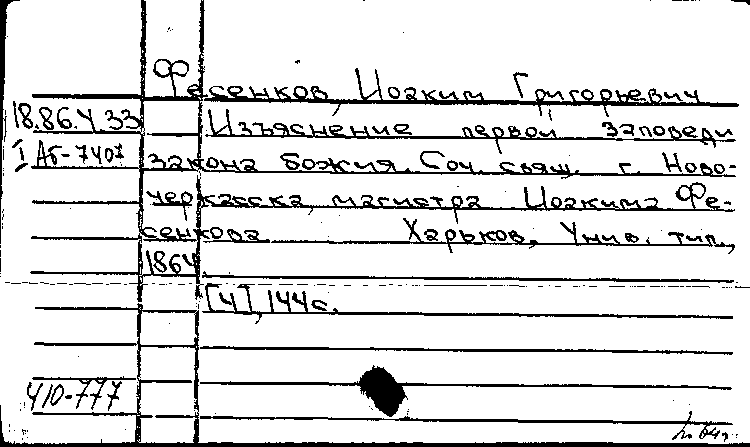 Фесенков, Иоаким Григорьевич
18.86.4.33 Изъяснение первой заповеди
I Аб-7407 закона божия. Соч. свящ. г. Ново-
черкасска, магистра Иоакима Фе-
сенкова Харьков, Унив. тип.,
1864
[4], 144 с.
410-777